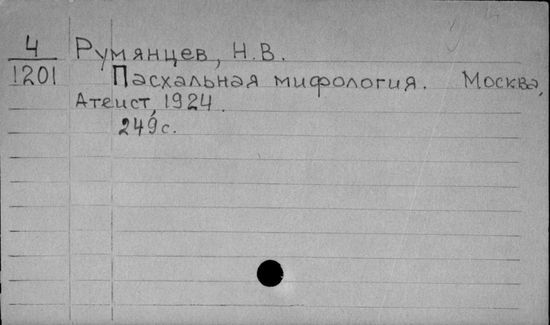 4
1201
Румянцев, Н.В.
Пасхальная мифология. Москва,
Атеист, 1924.
249 с.